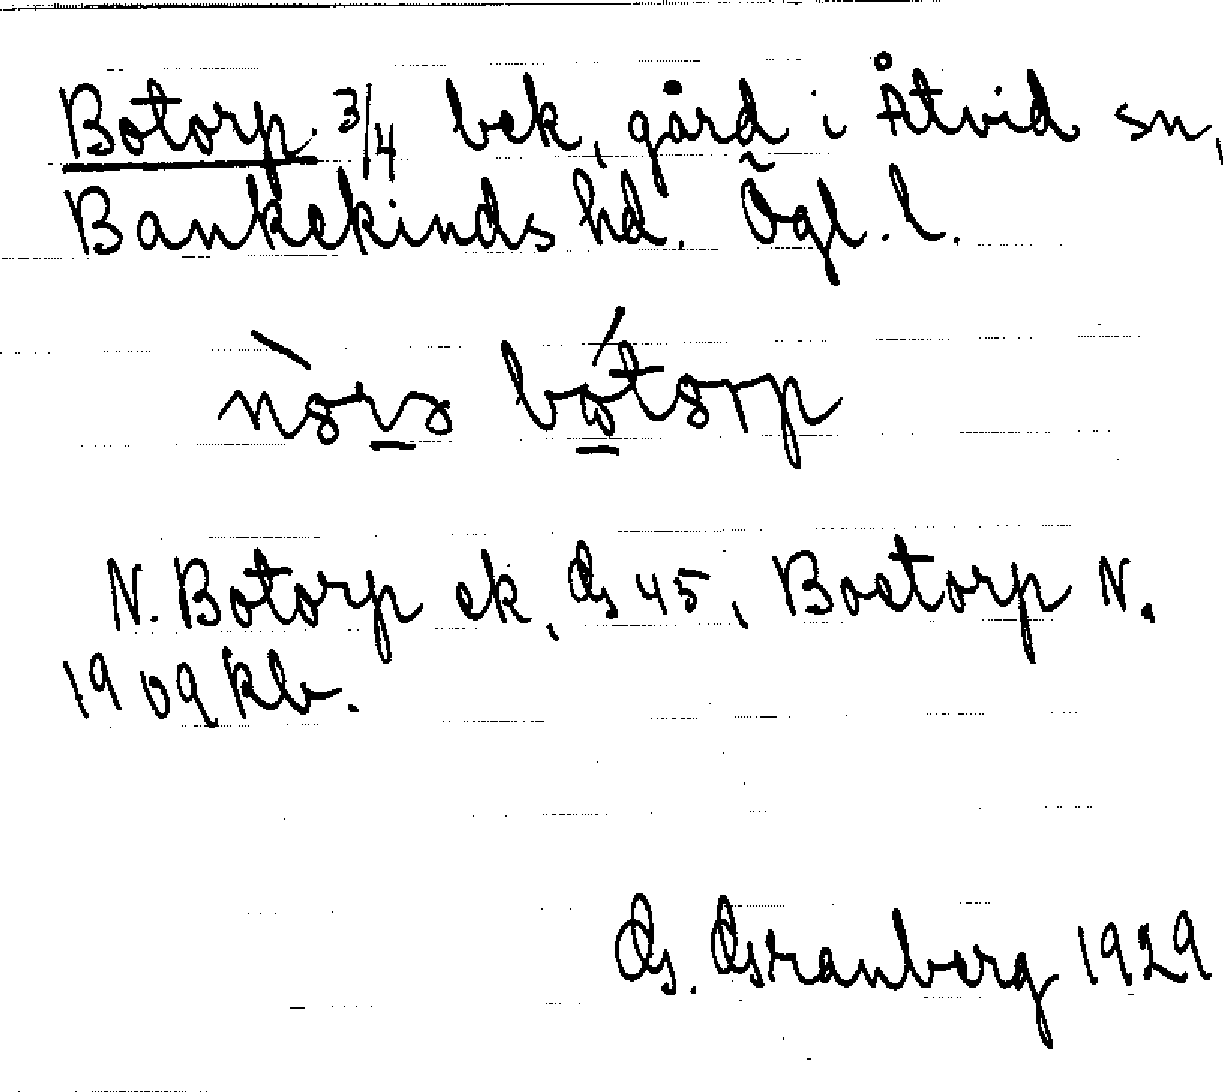 Botorp 3/4 bek, gård i Åtvid sn,
Bankekinds hd. Ögl. l.
botorp
N. Botorp ek, Gs 45, Boetorp N.
1909 kb.
G. Granberg 1929